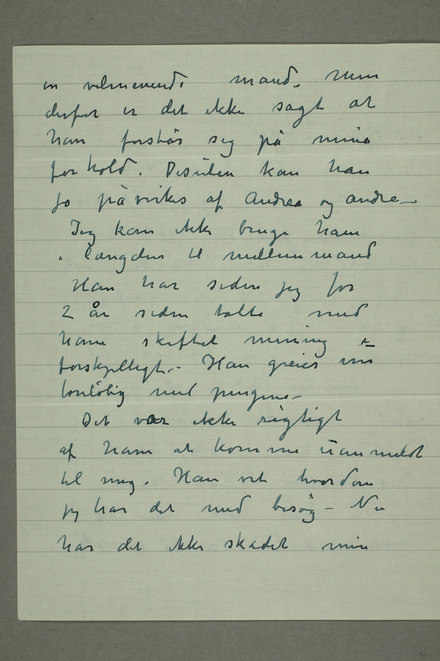 en velmenende mand. Men
derfor er det ikke sagt at
han forstår sig på mine
forhold. Desuden kan han
jo påvirkes af Andrea og andre—
Jeg kan ikke bruge ham
i længden til mellemmand
Han har siden jeg for
2 år siden talte med
ham skiftet mening
forskjelligt. Han greier
foreløbig med pengene—
Det var ikke rigtigt
af ham at komme uanmeldt
til mig. Han vet hvordan
jeg har det med besøg — Nu
har det ikke skadet min